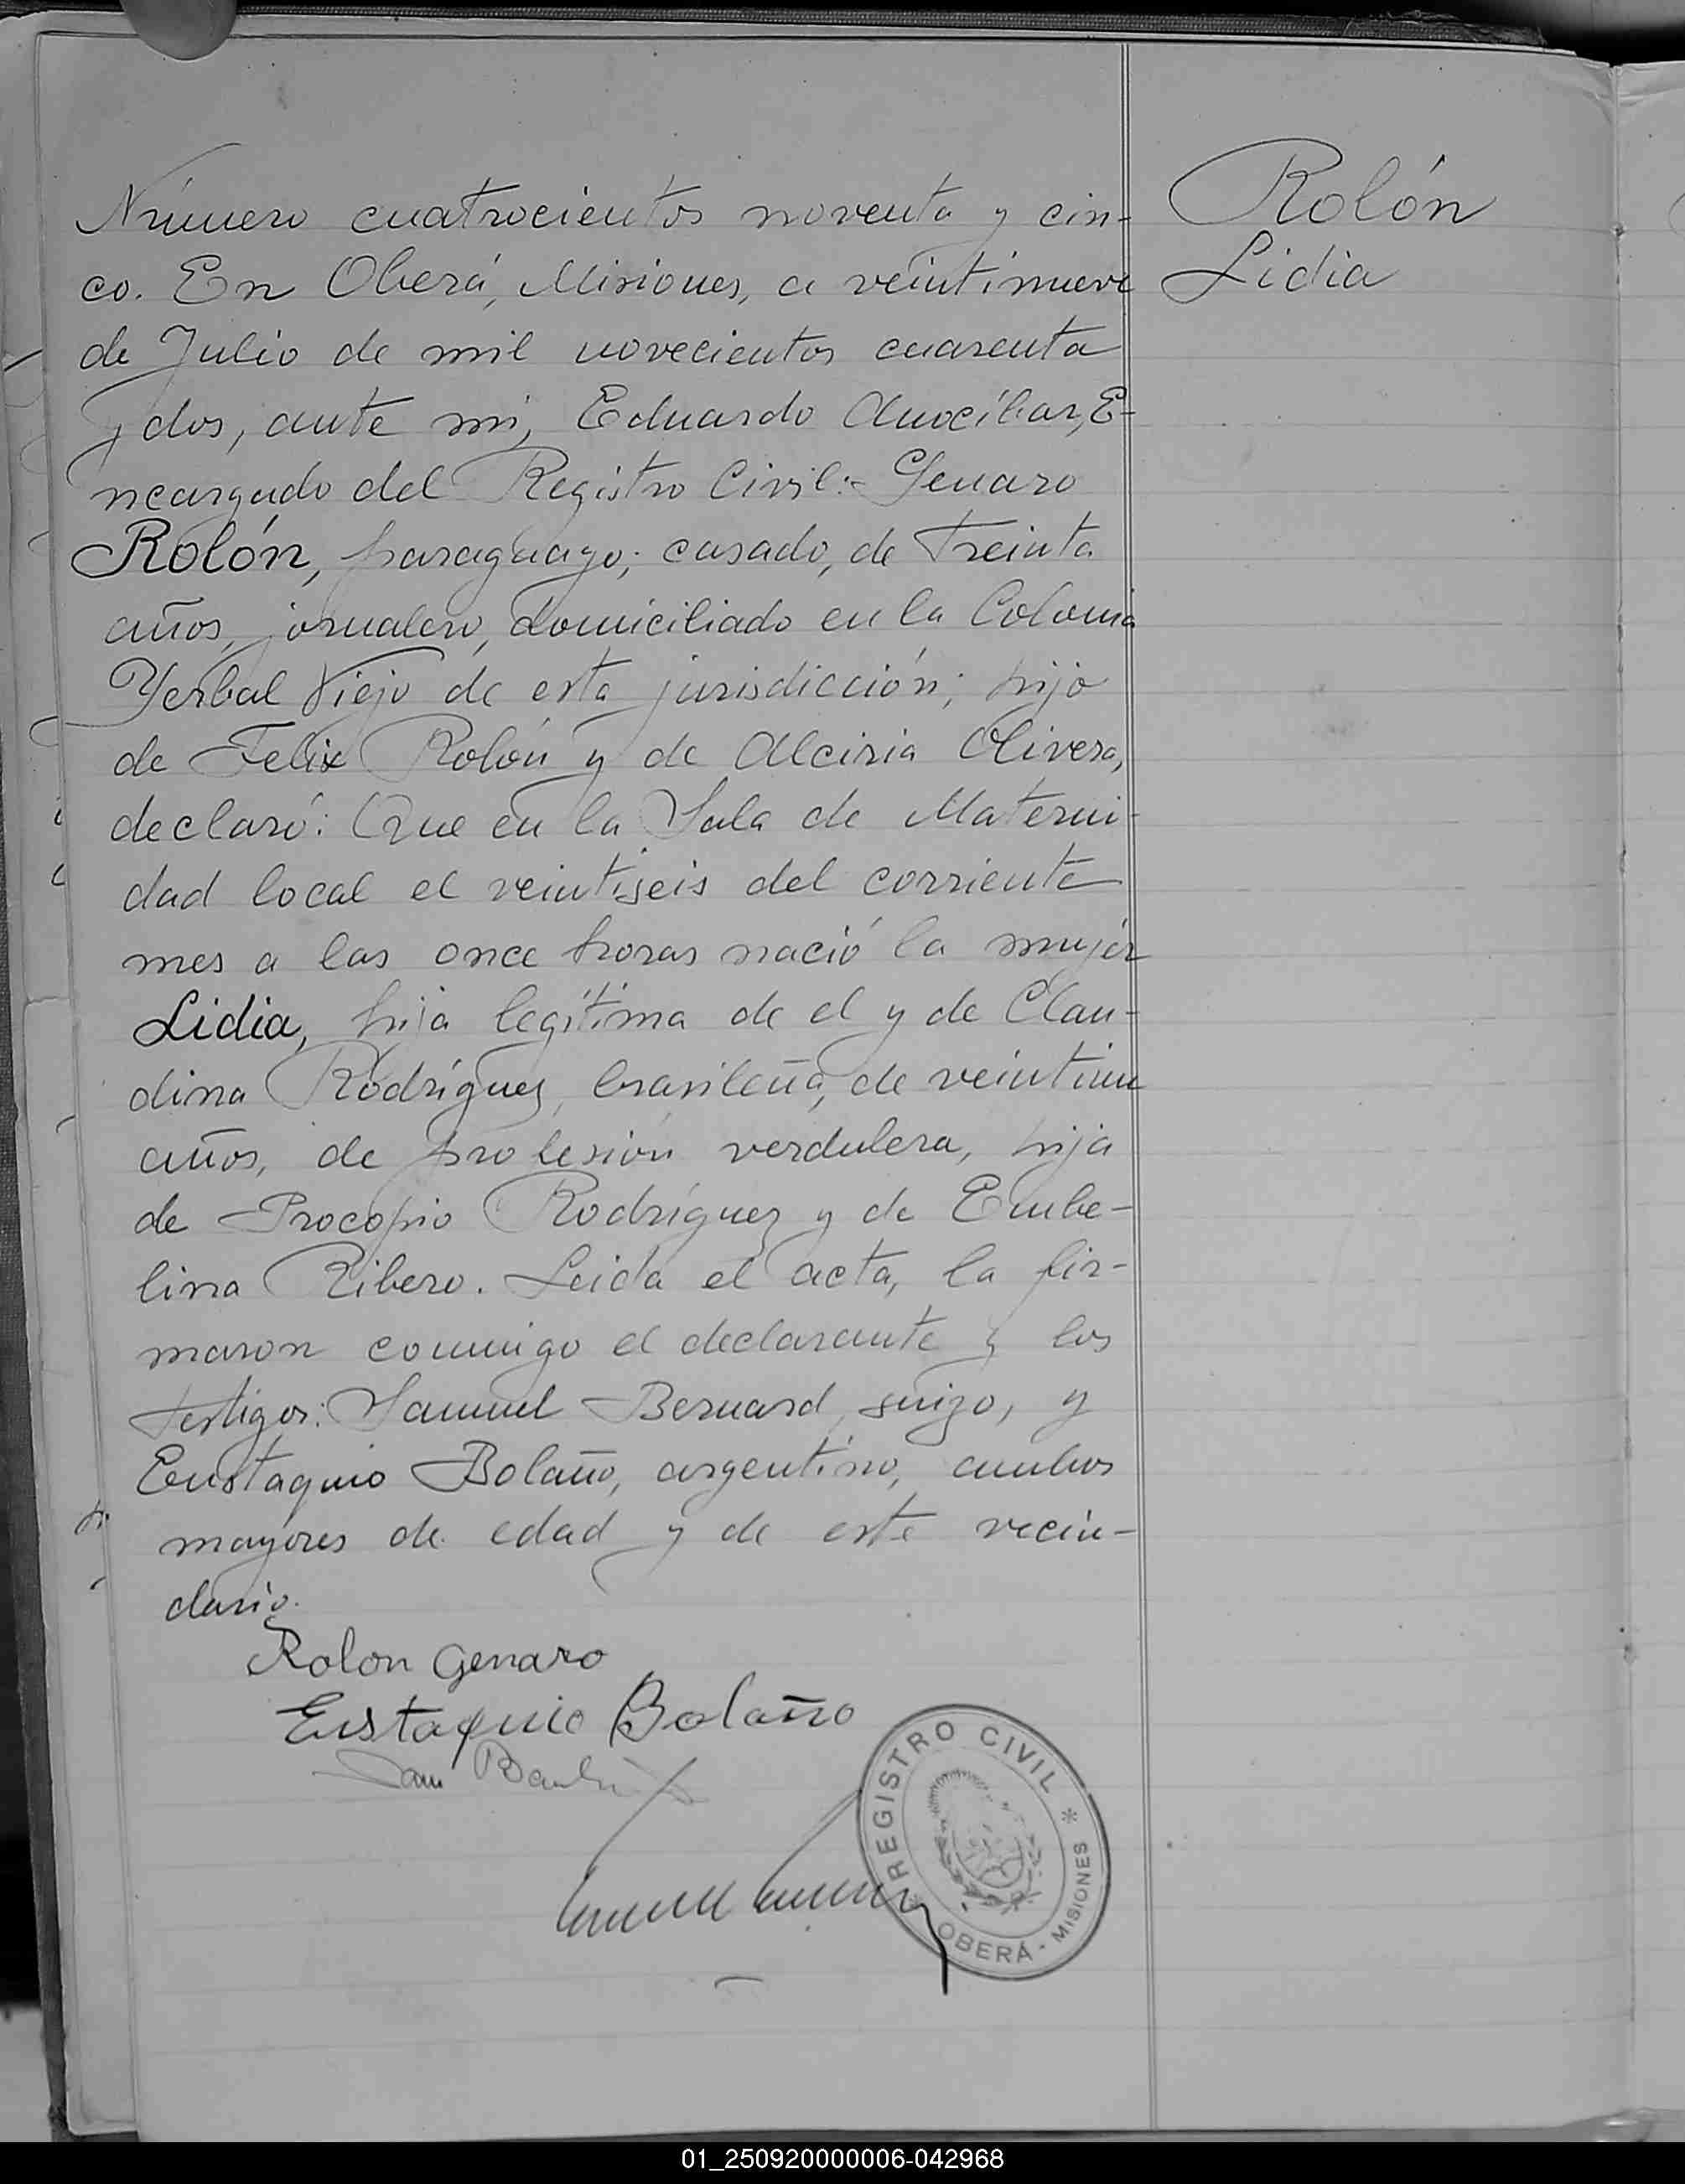 Número cuatrocientos noventa y cin-
co. En Oberá, Misiones, a veintinueve
de Julio de mil novecientos cuarenta
y dos, ante mi, Eduardo Anocíbar, E-
ncargado del Registro Civil:- Genaro
Rolón, paraguayo, casado, de treinta
años, jornalero, domiciliado en la Colonia
Yerbal Viejo de esta jurisdicción; hijo
de Felix Rolón y de Alciria Olivera,
declaró: Que en la Sala de Materni-
dad local el veintiseis del corriente
mes a las once horas nació la mujer
Lidia, hija legítima de el y de Clau-
dina Rodríguez, brasileña, de veintiun
años, de profesión verdulera, hija
de Procopio Rodríguez y de Embe-
lina Ribero. Leida el acta, la fir-
maron conmigo el declarante y los
testigos: Samuel Bernard, suizo, y
Eustaquio Bolaño, argentino, ambos
mayores de edad y de este vecin-
dario.
Rolon Genaro
Eustaquio Bolaño
Sam
REGISTRO CIVIL
OBERÁ - MISIONES
Rolón
Lidia
01_250920000006-042968